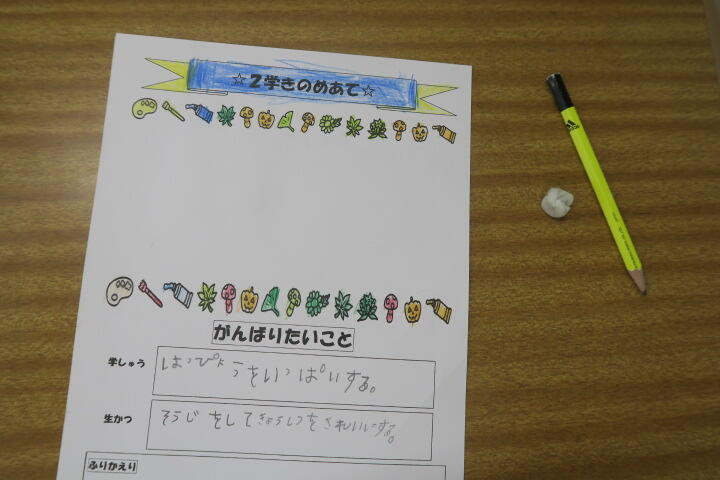 ☆2学きのめあて☆
がんばりたいこと
学しゅう
はっぴょうをいっぱいする。
生かつ
そうじをしてきょうしつをきれいにする。
ふりかえり
adidas